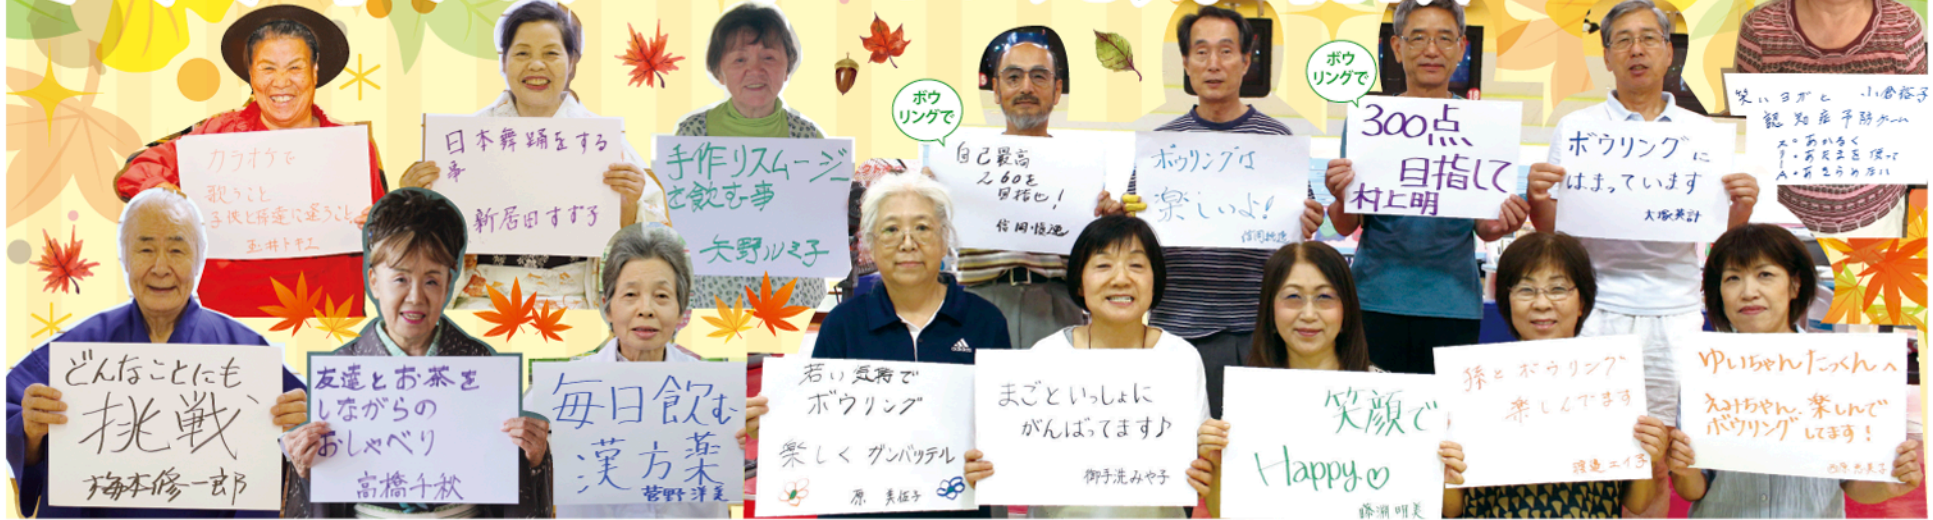 カラオケで
歌うこと
子供と師達に逢うこと
玉井トキエ
日本舞踊をする
事
新居田すず子
手作りスムージー
を飲む事
矢野ルミ子
ボウ
リングで
自己最高
260を
目指せ!
信岡
ボウリングは
楽しいよ!
信岡
ボウ
リングで
300点
目指して
村上明
ボウリングに
はまっています
大塚英計
笑いヨガと 小倉裕子
認知症予防ゲーム
あかるく
あたまを使って
あきらめない
どんなことにも
挑戦
梅本修一郎
友達とお茶を
しながらの
おしゃべり
高橋千秋
毎日飲む
漢方薬
菅野洋美
若い気持で
ボウリング
楽しくガンバッテル
原 美佐子
まごといっしょに
がんばってます♪
御手洗みや子
笑顔で
Happy♡
藤渕明美
孫とボウリング
楽しんでます
渡邉エイ子
ゆいちゃんたっくんへ
えみちゃん、楽しんで
ボウリングしてます!
adidas